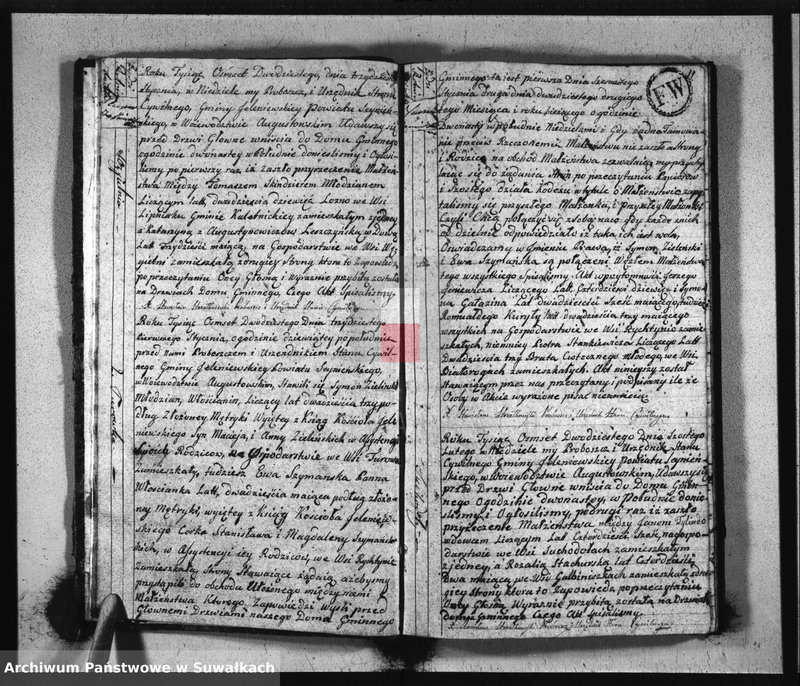 Roku Tysiąc Ośmset Dwudziestego, dnia trzydziestego
stycznia, w Niedziele my Proboszcz, i Urzędnik Stanu
Cywilnego, Gminy Jeleniewskiey Powiatu Seyneń-
skiego, w Woiewodztwie Augustowskim Udawszy się
przed Drzwi Głowne wniścia do Domu Gminnego
ogodzinie dwonastey w Południe donieslismy i Ogłosi-
lismy po pierwszy raz iż zaszło przyrzeczenie Małżeń-
stwa Między Tomaszem Skindzierem Młodzianem
Liczącym lat dwadzieścia dziewięć we Wsi
Lipniaku, Gminie Kuletnickiey zamieszkałym z jedney
a Katarzyną z Augustynowiczow Leszczynską wdową
Lat Trzydzieści maiącą, na Gospodarstwie we Wsi
zamieszkałą zdrugiey Strony, ktora to Zapowiedz
po przeczytaniu Oney Głosną i Wyraznie przybita została
na Drzwiach Domu Gminnego Czego Akt Spisalismy.
Roku Tysiąc Ośmset Dwudziestego Dnia trzydziestego
pierwszego Stycznia, ogodzinie dziewiątey popołudniu
przed nami Proboszczem i Urzendnikiem Stanu Cywil-
nego Gminy Jeleniewskiey Powiatu Seynieńskiego,
w Woiewodztwie Augustowskim, Stawili się Symon Zielinski
Młodzian, Włościanin, Liczący lat dwadzieścia trzy po-
dług Złożoney Metryki Wyiętey z Ksiąg Kościoła Jele-
niewskiego Syn Macieja, i Anny Zielińskich w Assystencyi
Rodzicow, na Gospodarstwie we Wsi
zamieszkały, tudzież Ewa Szymanska Panna
Włościanka Latt, dwadzieścia maiąca podług złożo-
ney Metryki, wyiętey z Ksiąg Kościoła Jeleniew-
skiego Corka Stanisława i Magdaleny Szymans-
kich, w Assystencyi tey Rodzicow, we Wsi Rychtynie
zamieszkałey Strony Stawaiące żądaią ażebysmy
przystąpili do obchodu Ułożonego między niemi
Małżeństwa Ktorego Zapowiedzi Wyszli przed
Głownemi Drzwiami naszego Domu Gminnego
Gminnego ta jest pierwsza Dnia Szesnastego
Stycznia druga dnia dwudziestego drugiego
tego Miesiąca i roku bieżącego ogodzinie
Dwonastey w południe Niedzielami Gdy żadne Tamowa-
nie przeciw Rzeczonemu Małżeństwu nie zaszło a Strony
i Rodzice na obchod Małżeństwa zezwalaią my przychy-
laiąc się do żądania Stron po przeczytaniu Papierow
i Szostego działu Kodexu w tytule o Małżeństwie zapy-
talismy się przyszłego Małżonka, i przyszłey Małżonki
Czyli Chcą połączyć się z sobą na co gdy każde z nich
oddzielnie odpowiedziało iż taka ich jest wola,
Oswiadczamy w Imieniu Prawa, iż Symon Zielenski
i Ewa Szymańska są połączeni Węzłem Małżeństwa
tego wszystkiego Spisalismy Akt w przytomności Jerzego
Jeniewicza Liczącego Latt, Czterdzieści dziewięć i Symo-
na Gałązina Lat dwadzieścia Sześć maiącego tudzież
Romualdego Kuryły lat dwadzieścia trzy maiącego
wszytkich na Gospodarstwie we Wsi Rychtynie zamie-
szkałych, niemniey Piotra Stankiewicza Liczącego Latt
Dwadzieścia trzy Brata Ciotecznego młodego, we Wsi
Białorogach zamieszkałych. Akt niniejszy został
Stawaiącym przez nas przeczytany i podpisany ile że
Osoby w Akcie wyrażone pisać nieumieią
Roku Tysiąc Ośmset Dwudziestego Dnia Szostego
Lutego w Niedziele my Proboszcz i Urzędnik Stanu
Cywilnego Gminy Jeleniewskiey Powiatu Seynień-
skiego, w Woiewodztwie Augustowskim, Udawszy się
przed Drzwi Głowne wniścia do Domu Gmin-
nego Ogodzinie dwonastey, w Południe donie-
slismy i Ogłosilismy, podrugi raz iż zaszło
przyrzeczenie Małżeństwa między Janem
wdowcem Liczącym Lat Czterdzieści Sześć, na Gospo-
darstwie we Wsi Suchodołach zamieszkałym
z jedney, a Rozalią Stachurską lat Czterdzieści
Dwa maiącą we Wsi Gulbiniszkach zamieszkałą zdru-
giey Strony ktora to Zapowiedz po przeczytaniu
Oney Głosną Wyraznie przybita została na Drzwiach
Domu Gminnego Czego Akt Spisalismy
FW
Archiwum Państwowe w Suwałkach